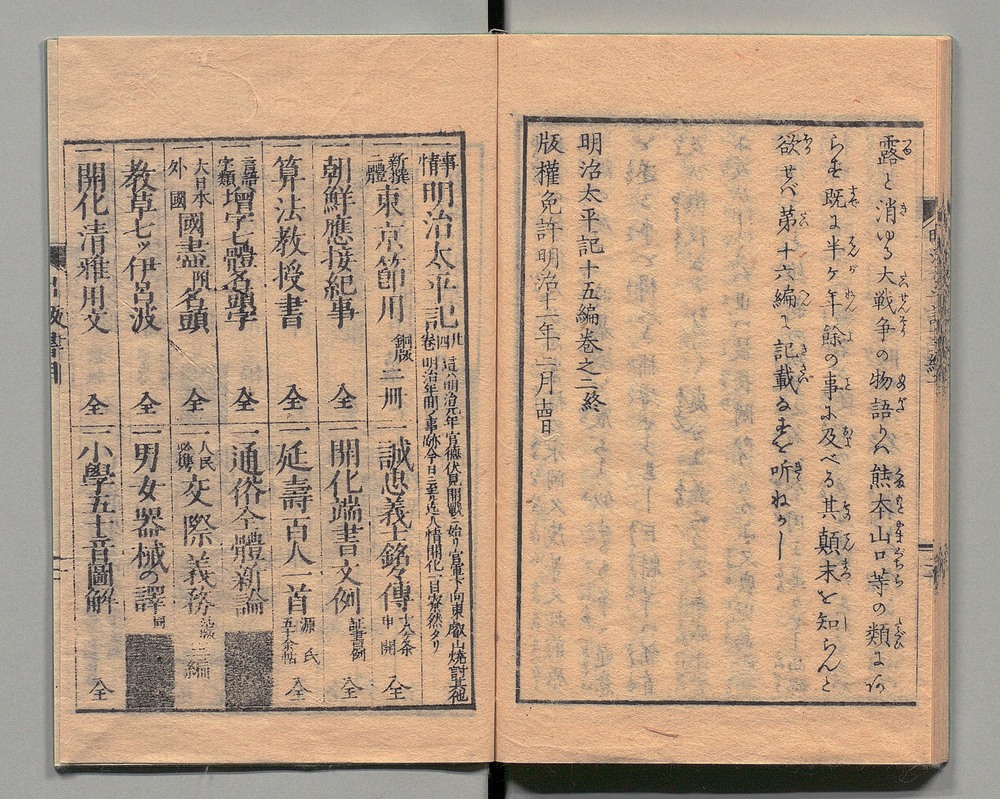 露と消ゆる大戦争の物語りハ熊本山口等の類にあ
らず既に半ヶ年餘の事に及べる其顛末を知らんと
欲せバ第十六編に記載るを听ねかし
明治太平記十五編巻之二終
版權免許明治十一年二月十四日
事情 明治太平記 廿四卷
這ハ明治元年官德伏見開戰ニ始リ官軍下向東叡山焼討其他
明治年間ノ事跡今日ニ至ル迄人情開化一目瞭然タリ
新撰二體 東京節用 銅版二冊
朝鮮應接紀事 全
算法教授書 全
言語字類 增字七體名頭字 全
大日本外國 國盡附名頭 全
教草七ッ伊呂波 全
開化清雅用文 全
誠忠義士銘々傳 全
開化端書文例 全
延壽百人一首 源氏五十余帖 全
通俗今體新論
人民必携 交際義務 三編
男女器械の譯 同
小學五十音圖解 全
出版書目